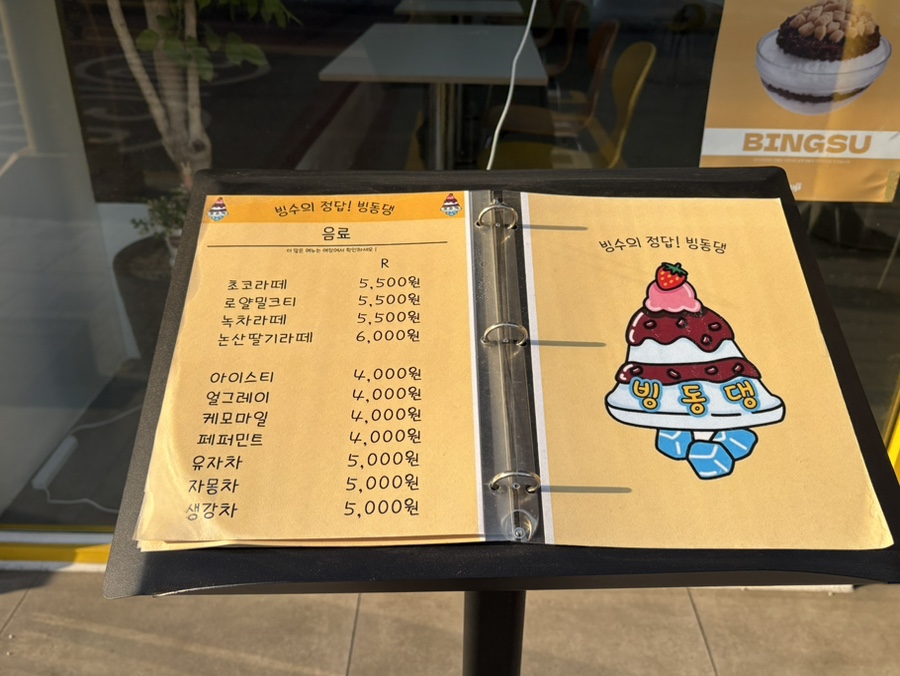 빙수의 정답! 빙동댕
음료
더 많은 메뉴는 매장에서 확인하세요!
R
초코라떼 5,500원
로얄밀크티 5,500원
녹차라떼 5,500원
논산딸기라떼 6,000원
아이스티 4,000원
얼그레이 4,000원
케모마일 4,000원
페퍼민트 4,000원
유자차 5,000원
자몽차 5,000원
생강차 5,000원
빙수의 정답! 빙동댕
빙동댕
BINGSU